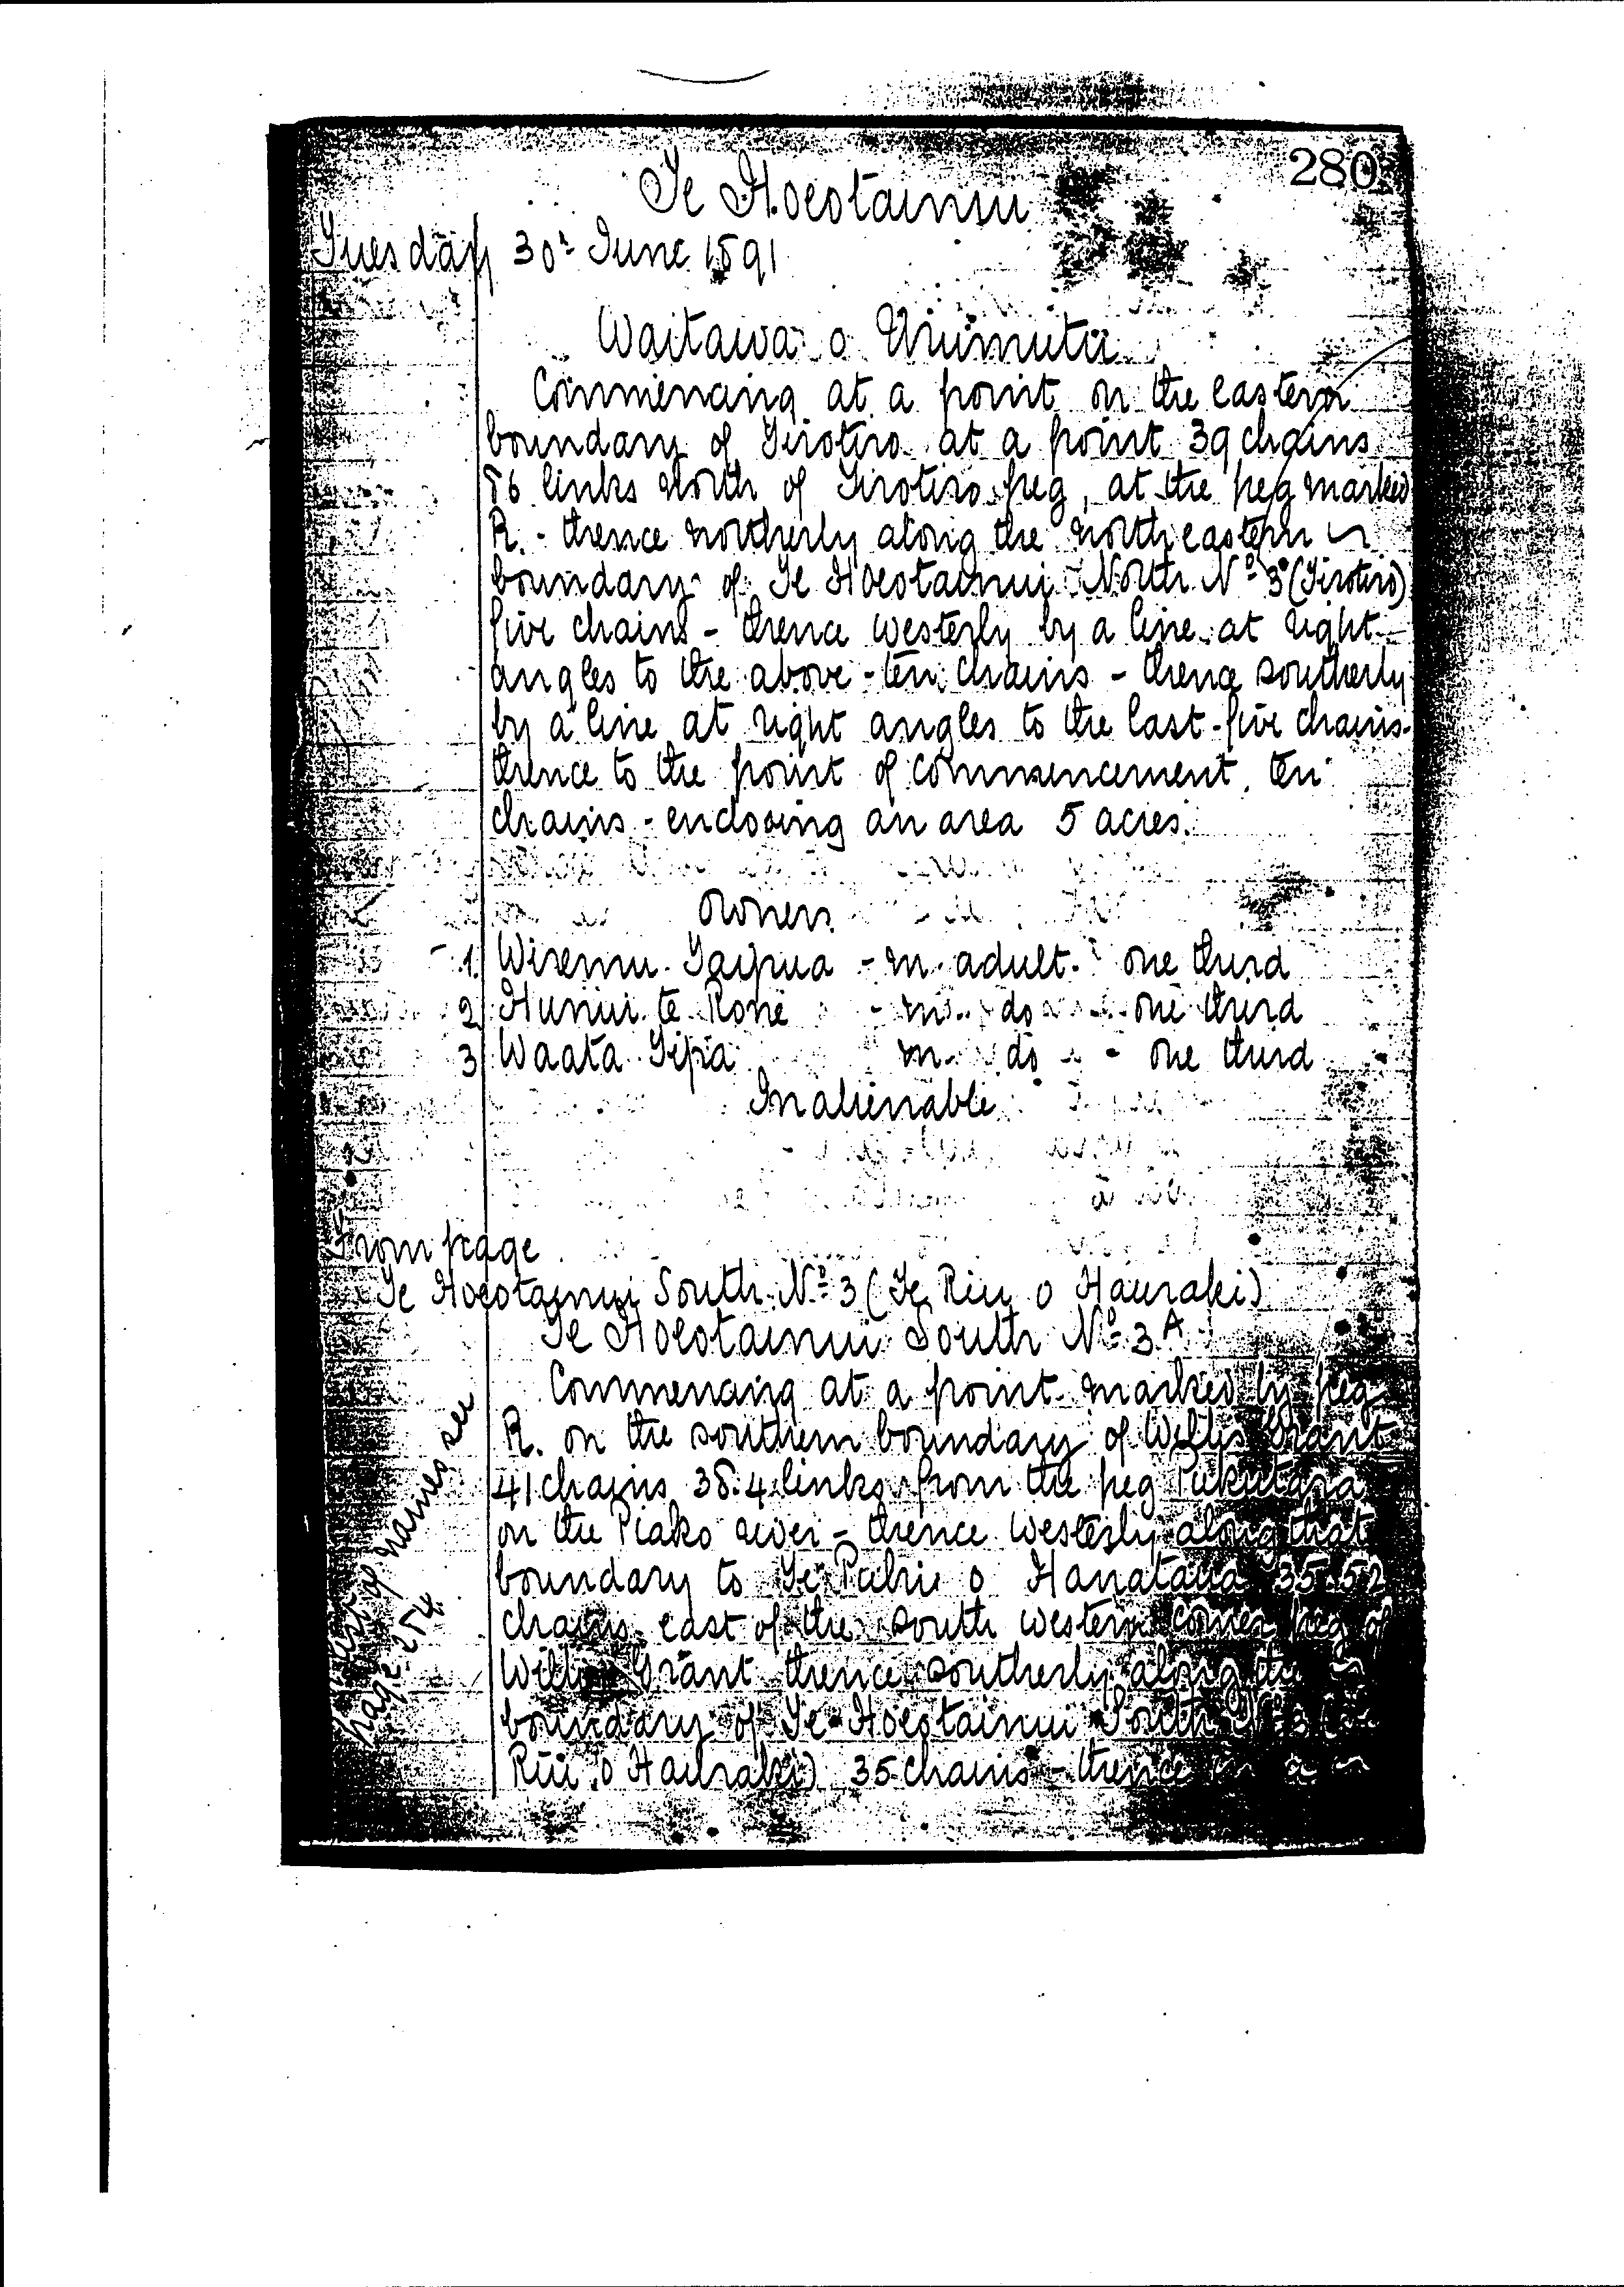 280
Te Hoeotainui
Tuesday 30th June 1891
Waitawa o Uruimutu
Commencing at a point on the eastern
boundary of Tirotiro at a point 39 chains
86 links north of Tirotiro peg, at the peg marked
R. - thence northerly along the north eastern
boundary of Te Hoeotainui North No 3 (Tirotiro)
five chains - thence westerly by a line at right
angles to the above - ten chains - thence southerly
by a line at right angles to the last - five chains -
thence to the point of commencement ten
chains - enclosing an area 5 acres.
Owners
1. Wiremu Taipua - m. adult - one third
2 Hunui te Rone - m. do - one third
3 Waata Tipa m. do - one third
Inalienable
From page
Te Hoeotainui South No 3 (Te Riu o Hauraki)
Te Hoeotainui South No 3A
Commencing at a point marked by peg
R. on the southern boundary of Grant
41 chains 38.4 links from the peg Pukutara
on the Piako river - thence westerly along that
boundary to Te o 35.52
chains east of the south western corner peg of
Grant thence southerly along the
boundary of Te Hoeotainui South
Riu o Hauraki) 35 chains - thence
list of names see
page 254